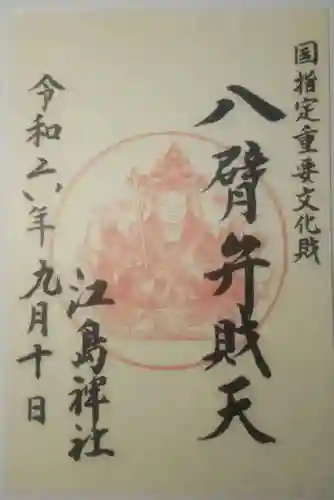 国指定重要文化財
八臂弁財天
江島神社
令和六年九月十日